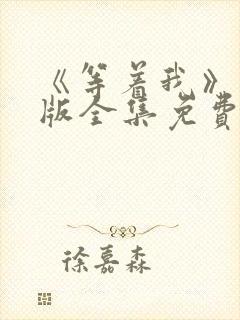 《等着我》
版全集免费
徐嘉森